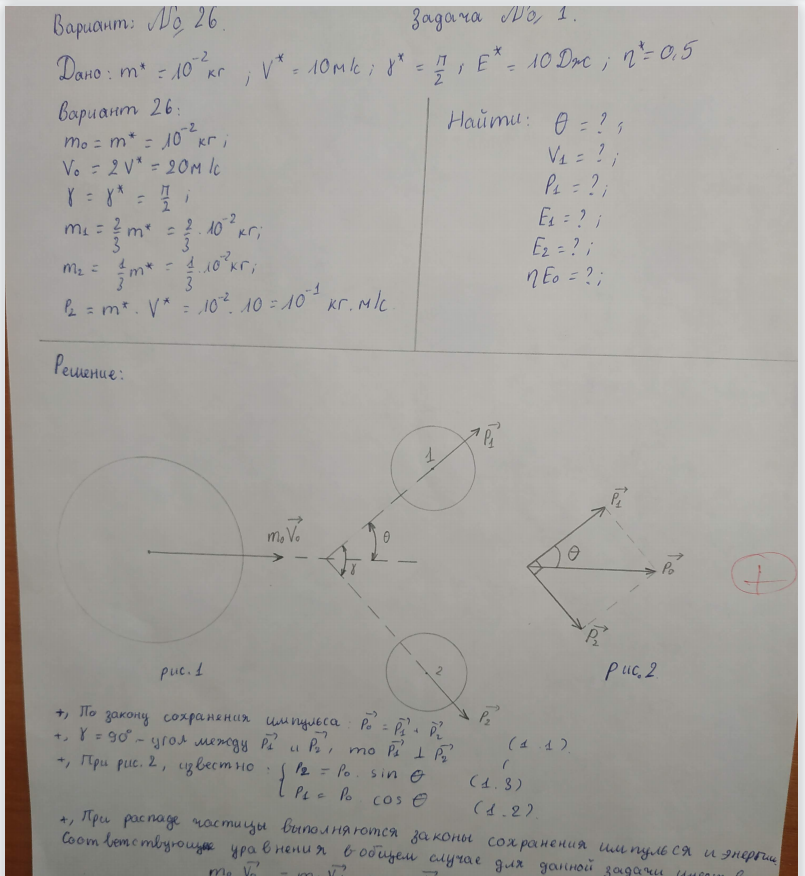 Вариант: № 26. Задача № 1.
Дано: m* = 10⁻² кг ; V* = 10 м/с ; γ* = π/2 ; E* = 10 Дж ; η* = 0,5
Вариант 26:
m₀ = m* = 10⁻² кг ;
V₀ = 2V* = 20 м/с
γ = γ* = π/2 ;
m₁ = 2/3 m* = 2/3 · 10⁻² кг;
m₂ = 1/3 m* = 1/3 · 10⁻² кг;
P₂ = m* · V* = 10⁻² · 10 = 10⁻¹ кг. м/с.
Найти: θ = ? ;
V₁ = ? ;
P₁ = ? ;
E₁ = ? ;
E₂ = ? ;
ηE₀ = ? ;
Решение:
m₀ V₀→
θ
γ
1
P₁→
2
P₂→
рис. 1
P₁→
θ
P₀→
P₂→
Рис. 2
+
+, По закону сохранения импульса: P₀→ = P₁→ + P₂→ (1.1).
+, γ = 90° – угол между P₁→ и P₂→, то P₁→ ⊥ P₂→
+, При рис. 2, известно: { P₂ = P₀ . sin θ (1.3)
P₁ = P₀ cos θ (1.2)
+, При распаде частицы выполняются законы сохранения импульса и энергии.
Соответствующие уравнения в общем случае для данной задачи
m₀ V₀→ = m